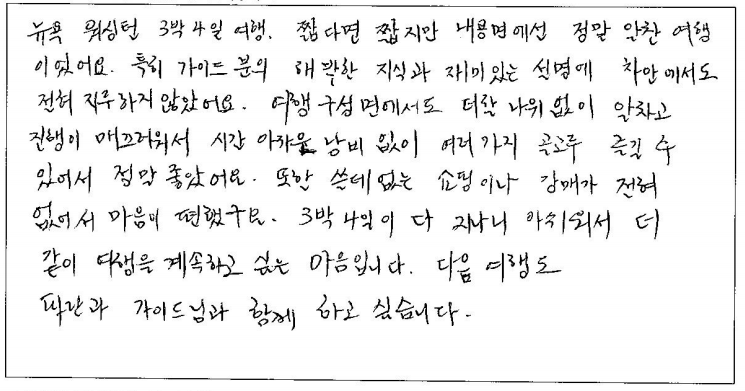 뉴욕 워싱턴 3박4일 여행. 짧다면 짧지만 내용면에선 정말 알찬 여행
이었어요. 특히 가이드 분의 해박한 지식과 재미있는 설명에 차안에서도
전혀 지루하지 않았어요. 여행 구성면에서도 더할 나위 없이 알차고
진행이 매끄러워서 시간 아까운 낭비 없이 여러가지 골고루 즐길 수
있어서 정말 좋았어요. 또한 쓸데없는 쇼핑이나 강매가 전혀
없어서 마음이 편했구요. 3박4일이 다 지나니 아쉬워서 더
같이 여행을 계속하고 싶은 마음입니다. 다음 여행도
가이드님과 함께 하고 싶습니다.